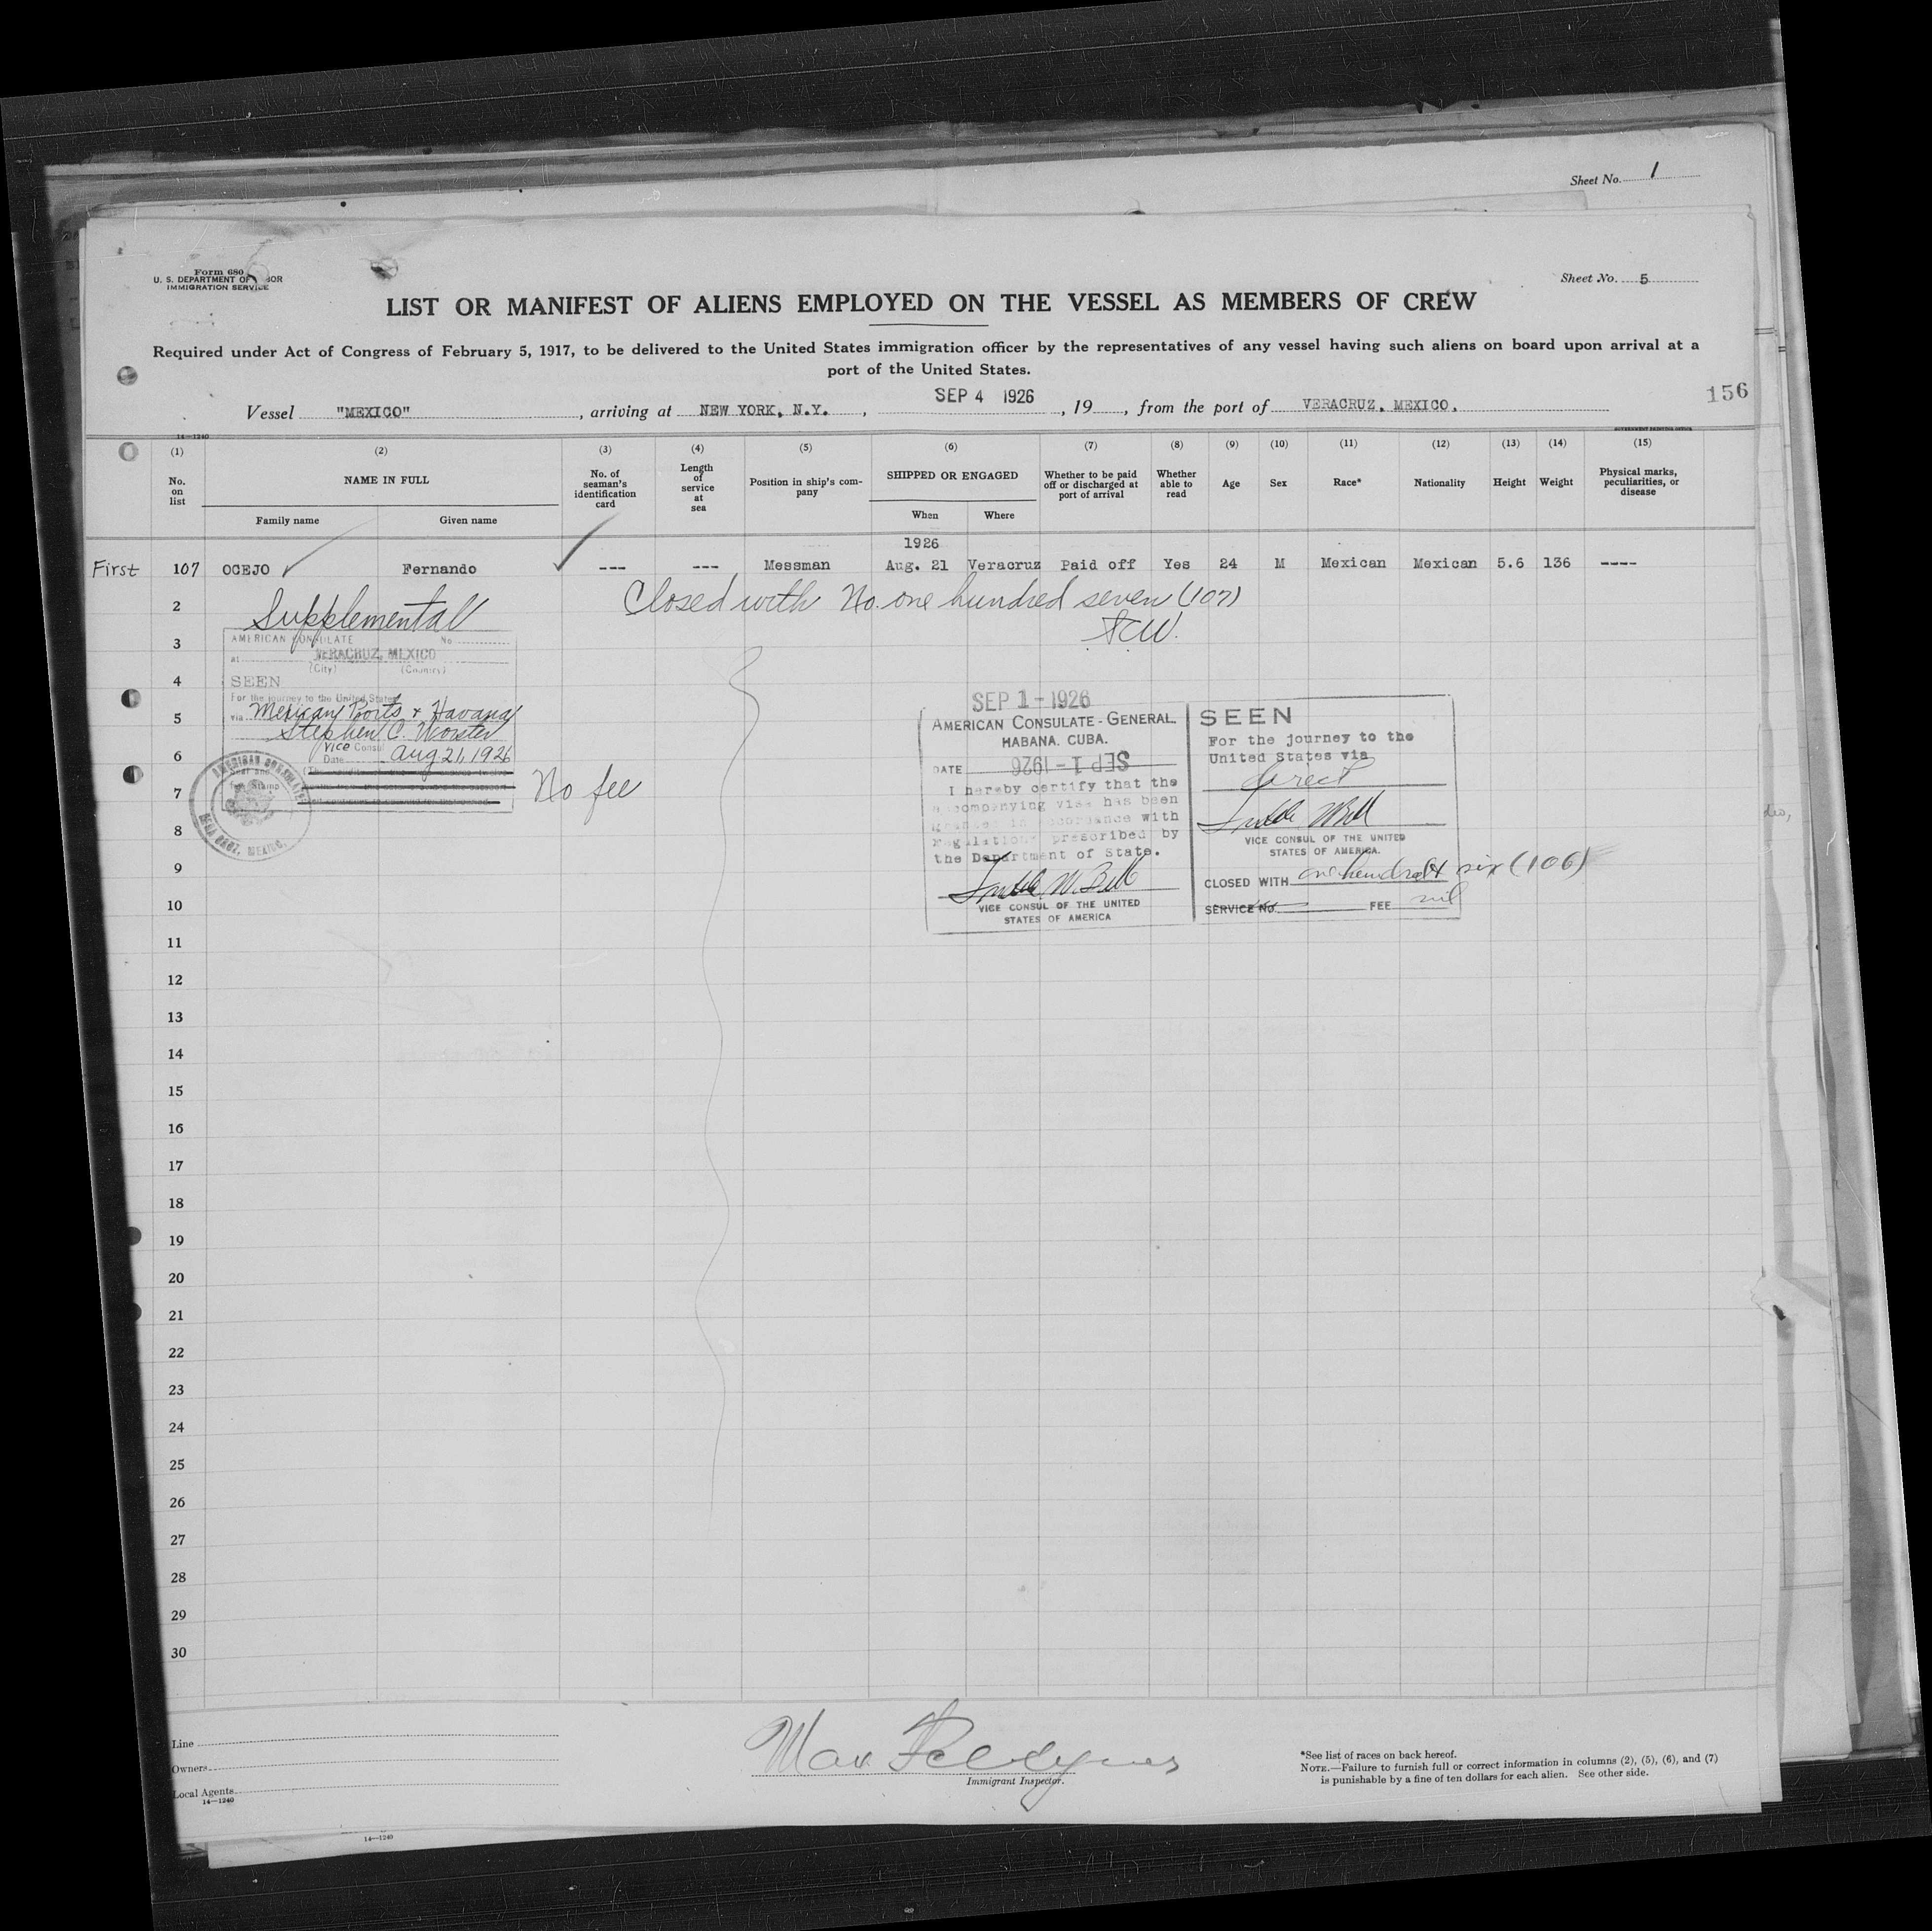 Sheet No. 1
Form 680
U. S. DEPARTMENT OF LABOR
IMMIGRATION SERVICE
Sheet No. 5
LIST OR MANIFEST OF ALIENS EMPLOYED ON THE VESSEL AS MEMBERS OF CREW
Required under Act of Congress of February 5, 1917, to be delivered to the United States immigration officer by the representatives of any vessel having such aliens on board upon arrival at a
port of the United States.
Vessel "MEXICO", arriving at NEW YORK, N.Y., SEP 4 1926, 19, from the port of VERACRUZ, MEXICO.
156
14—1240
GOVERNMENT PRINTING OFFICE
(1) (2) (3) (4) (5) (6) (7) (8) (9) (10) (11) (12) (13) (14) (15)
No. on list
NAME IN FULL
Family name Given name
No. of seaman's identification card
Length of service at sea
Position in ship's company
SHIPPED OR ENGAGED
When Where
Whether to be paid off or discharged at port of arrival
Whether able to read
Age
Sex
Race*
Nationality
Height
Weight
Physical marks, peculiarities, or disease
1926
First 107 OCEJO Fernando --- --- Messman Aug. 21 Veracruz Paid off Yes 24 M Mexican Mexican 5.6 136 ----
2
Supplemental
Closed with No. one hundred seven (107)
SCW.
3
AMERICAN CONSULATE No.
at VERACRUZ, MEXICO
(City) (Country)
4
SEEN
For the journey to the United States
via Mexican Ports & Havana
5
Stephen C. Worster
Vice Consul
6
Date Aug 21, 1926
AMERICAN CONSULATE
VERA CRUZ, MEXICO.
No fee
7
8
SEP 1 - 1926
AMERICAN CONSULATE-GENERAL.
HABANA. CUBA.
DATE SEP 1 - 1926
I hereby certify that the
accompanying visa has been
granted in accordance with
regulations prescribed by
the Department of State.
VICE CONSUL OF THE UNITED
STATES OF AMERICA
SEEN
For the journey to the
United States via
direct
VICE CONSUL OF THE UNITED
STATES OF AMERICA.
CLOSED WITH one hundred six (106)
SERVICE No. FEE nil
9
10
11
12
13
14
15
16
17
18
19
20
21
22
23
24
25
26
27
28
29
30
Line
Owners
Local Agents
14—1240
Max
Immigrant Inspector.
*See list of races on back hereof.
NOTE.—Failure to furnish full or correct information in columns (2), (5), (6), and (7)
is punishable by a fine of ten dollars for each alien. See other side.
14—1240